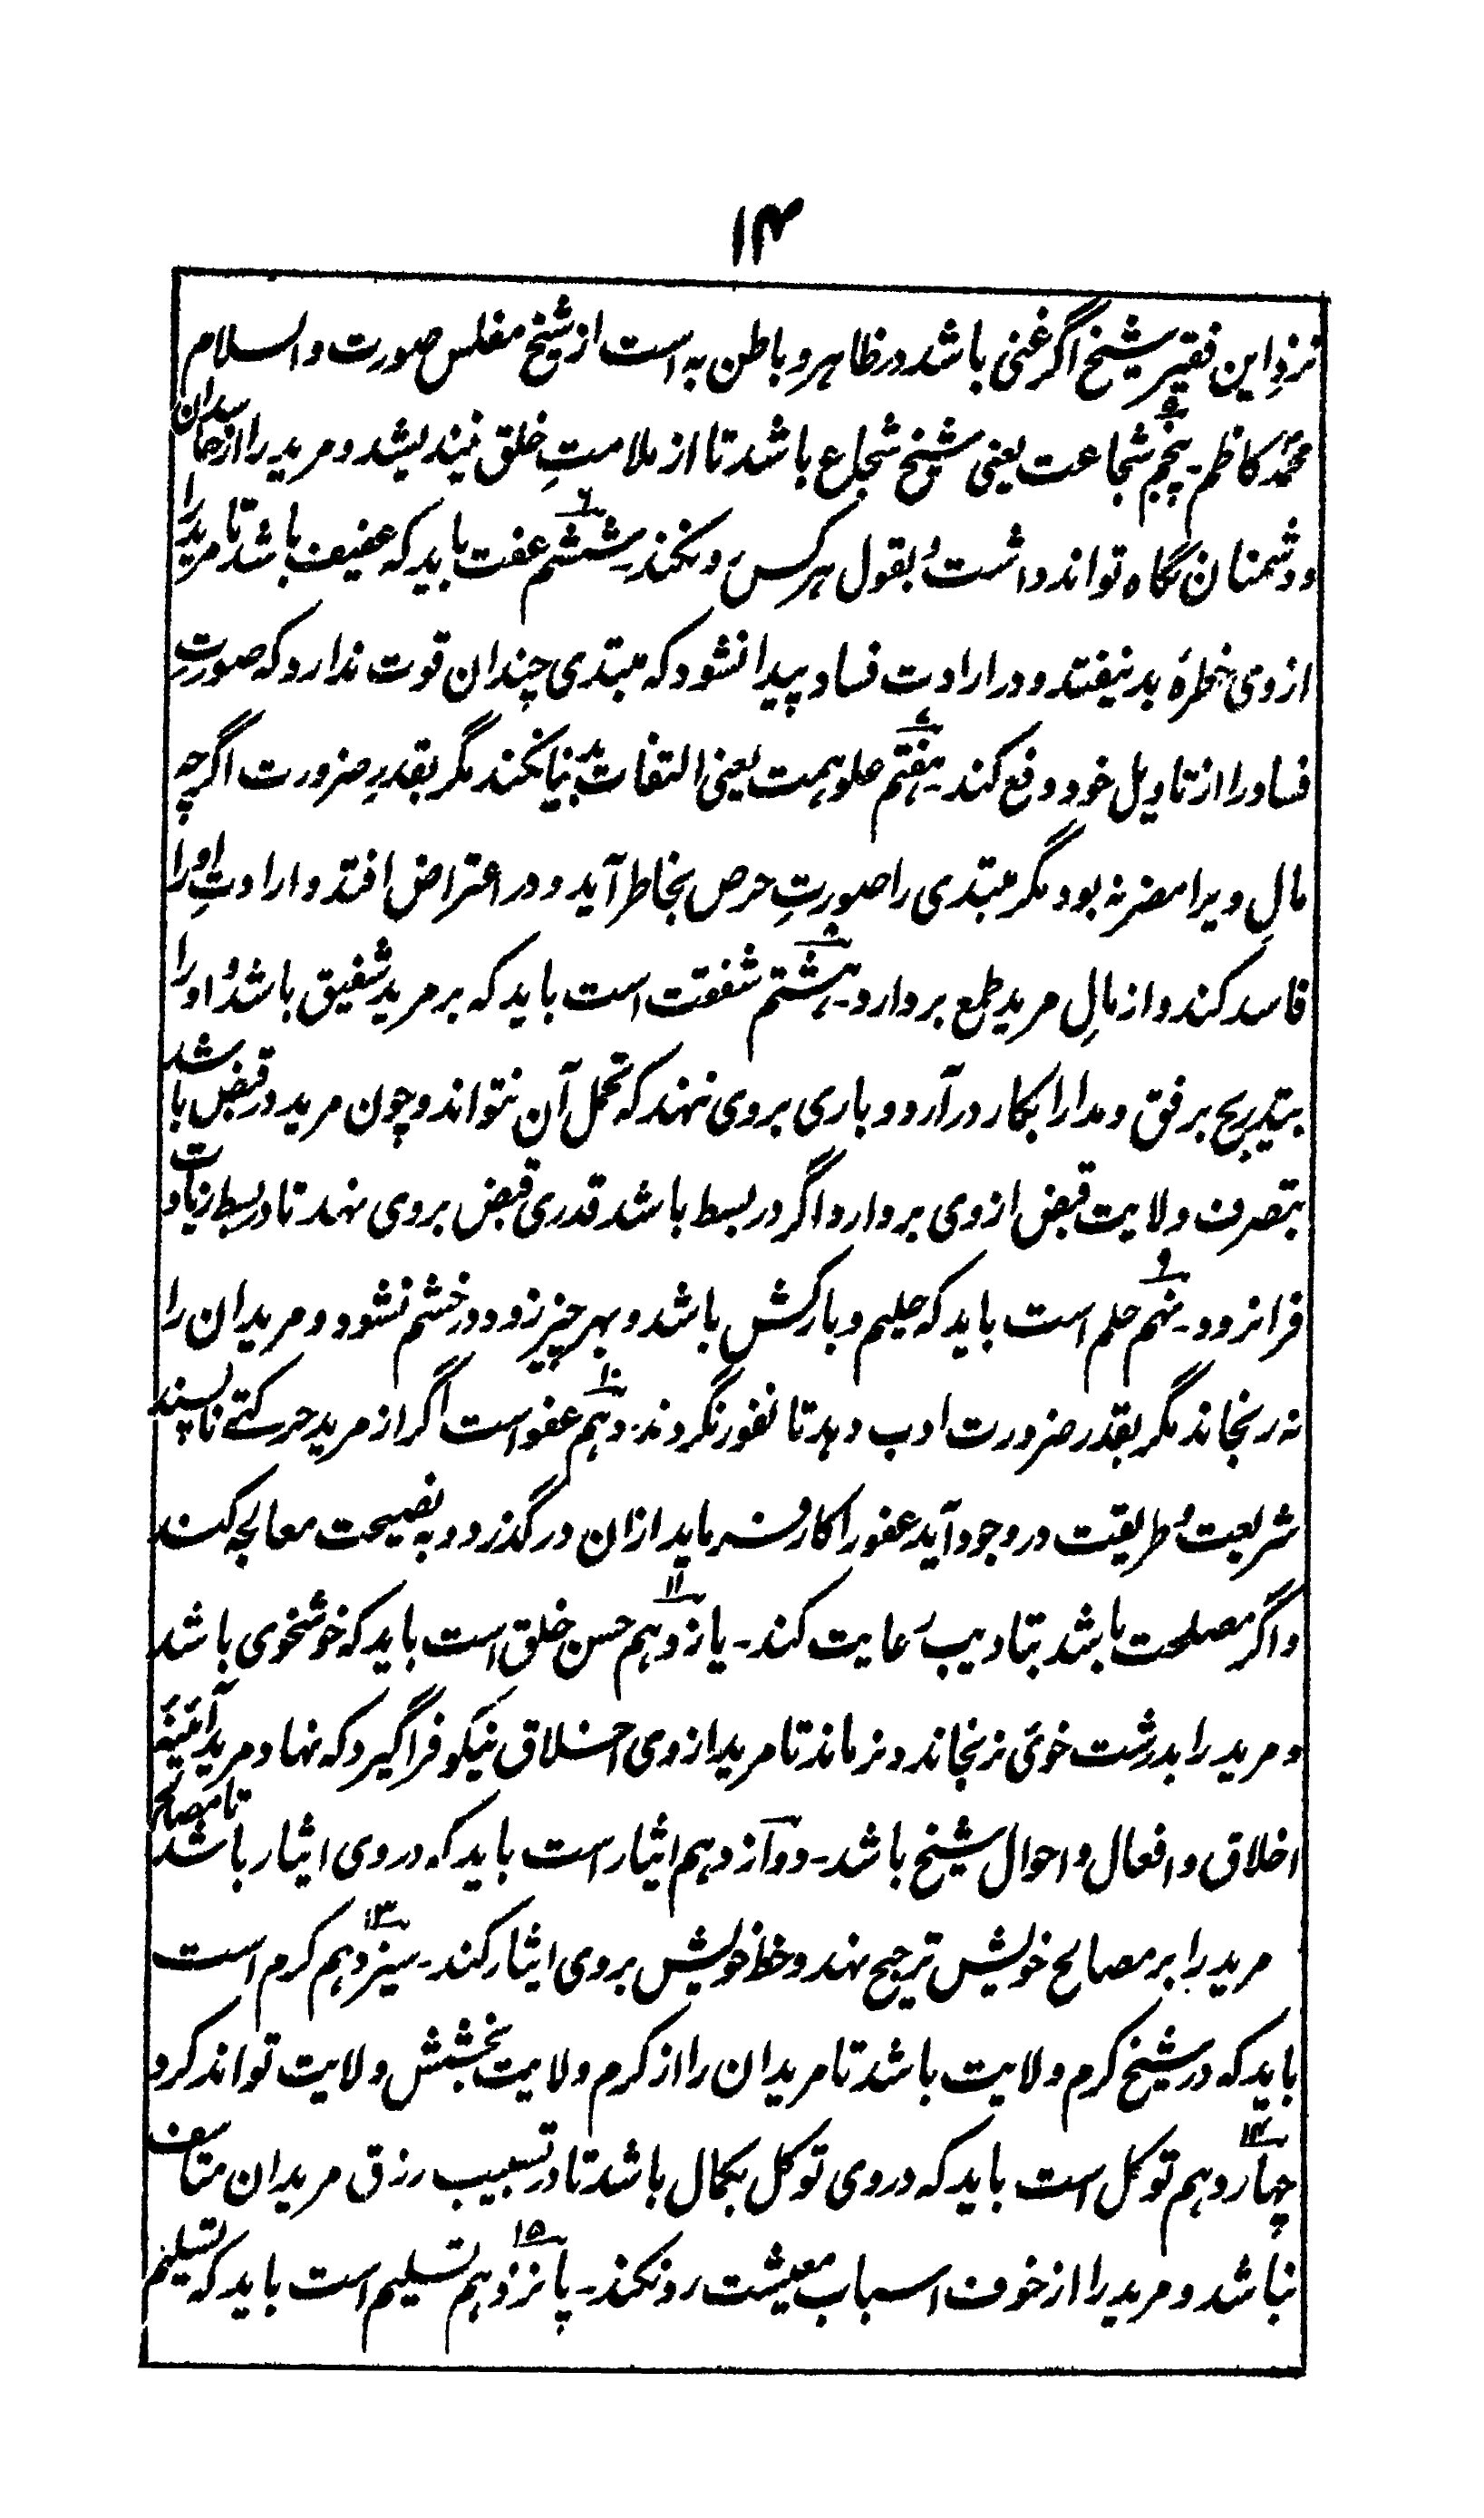 ۱۴
نزدِ این فقیر شیخ اگر غنی باشد در ظاهر و باطن به است از شیخ مفلس صورت والسلام
محمد کاظم۔ پنجم شجاعت یعنی شیخ شجاع باشد تا از ملامتِ خلق نیندیشد و مرید را از حاسدان
و دشمنان نگاه تواند داشت و بقول هر کس رد نکند۔ ششم عفت باید که عفیف باشد تا مرید را
از وی خطرهٔ بد نیفتد و در ارادت فساد پیدا نشود که مبتدی چندان قوت ندارد که صورتِ
فساد را از تاویل خود دفع کند۔ هفتم علو همت یعنی التفات بدنیا نکند مگر بقدرِ ضرورت اگرچه
مالِ ویرا مضر نه بود مگر مبتدی را صورتِ حرص بخاطر آید و در اعتراض افتد و ارادتِ او را
فاسد کند و از مالِ مرید طمع بردارد۔ هشتم شفقت است باید که بر مرید شفیق باشد و او را
بتدریج برفق و مدارا بکار در آرد و باری بر وی ننهد که تحمل آن نتواند و چون مرید در قبض باشد
بتصرف ولایت قبض از وی بردارد و اگر در بسط باشد قدری قبض بر وی نهد تا در بسط زیادت
فرا نرود۔ نهم حلم است باید که حلیم و بارکش باشد و بهر چیز زود در خشم نشود و مریدان را
نه رنجاند مگر بقدر ضرورت ادب دهد تا نفور نگردند۔ دهم عفو است اگر از مرید حرکتے ناپسند
شریعت و طریقت در وجود آید عفو را کار فرماید ازان در گذرد و به نصیحت معالجه کند
و اگر مصلحت باشد بتادیب رعایت کند۔ یازدهم حسن خلق است باید که خوشخوی باشد
و مرید را بدرشت خوئی نرنجاند و نرماند تا مرید از وی اخلاق نیکو فرا گیرد که نهاد مرید آئینهٔ
اخلاق و افعال و احوال شیخ باشد۔ دوازدهم ایثار است باید که در وی ایثار باشد تا مصالح
مرید را بر مصالح خویش ترجیح نهد و حظ خویش بر وی ایثار کند۔ سیزدهم کرم است
باید که در شیخ کرم ولایت باشد تا مریدان را از کرم ولایت بخشش ولایت تواند کرد
چهاردهم توکل است باید که در وی توکل بکمال باشد تا در تسبیب رزق مریدان متاسف
نباشد و مرید را از خوف اسباب معیشت رد نکند۔ پانزدهم تسلیم است باید که تسلیم